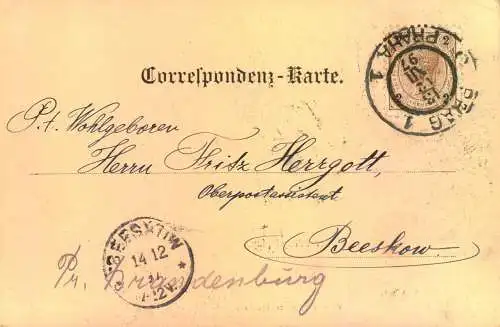 PRAG 1 PRAHA 1
97
Correspondenz-Karte.
P. t. Wohlgeboren
Herrn Fritz Herrgott,
Oberpostassistent
Beeskow.
BEESKOW
14 12
Pr. Brandenburg